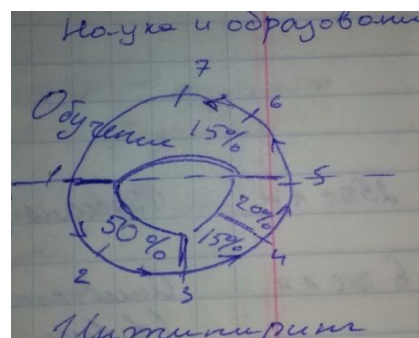 Наука и образовани
7
6
Обучение 15%
1 5
50% 15% 20%
2 3 4
Инжиниринг